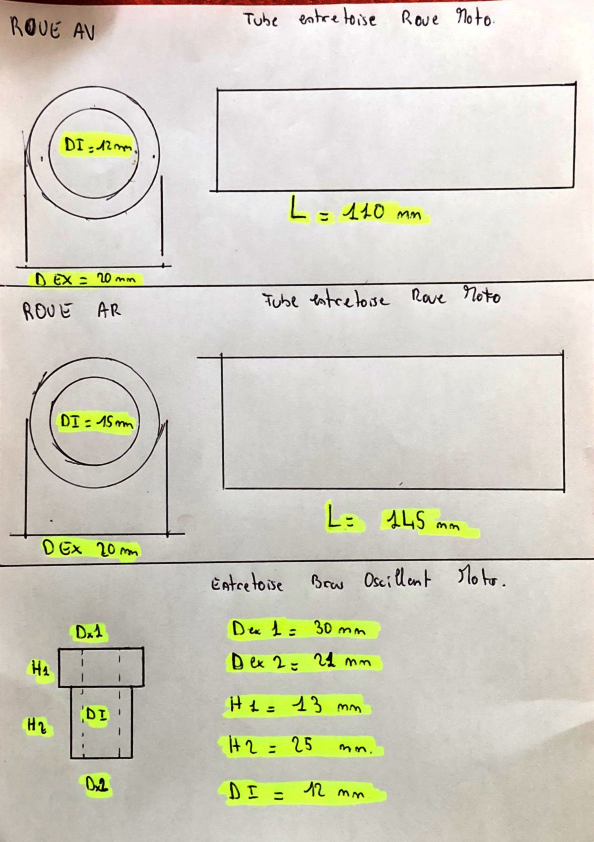 ROUE AV
Tube entretoise Roue Moto.
DI = 12 mm
L = 110 mm
D EX = 20 mm
ROUE AR
Tube entretoise Roue Moto
DI = 15 mm
L = 145 mm
D Ex 20 mm
Entretoise Bras Oscillant Moto.
Dx1
H1
H2
DI
Dx2
D ex 1 = 30 mm
D ex 2 = 21 mm
H1 = 13 mm
H2 = 25 mm.
DI = 12 mm